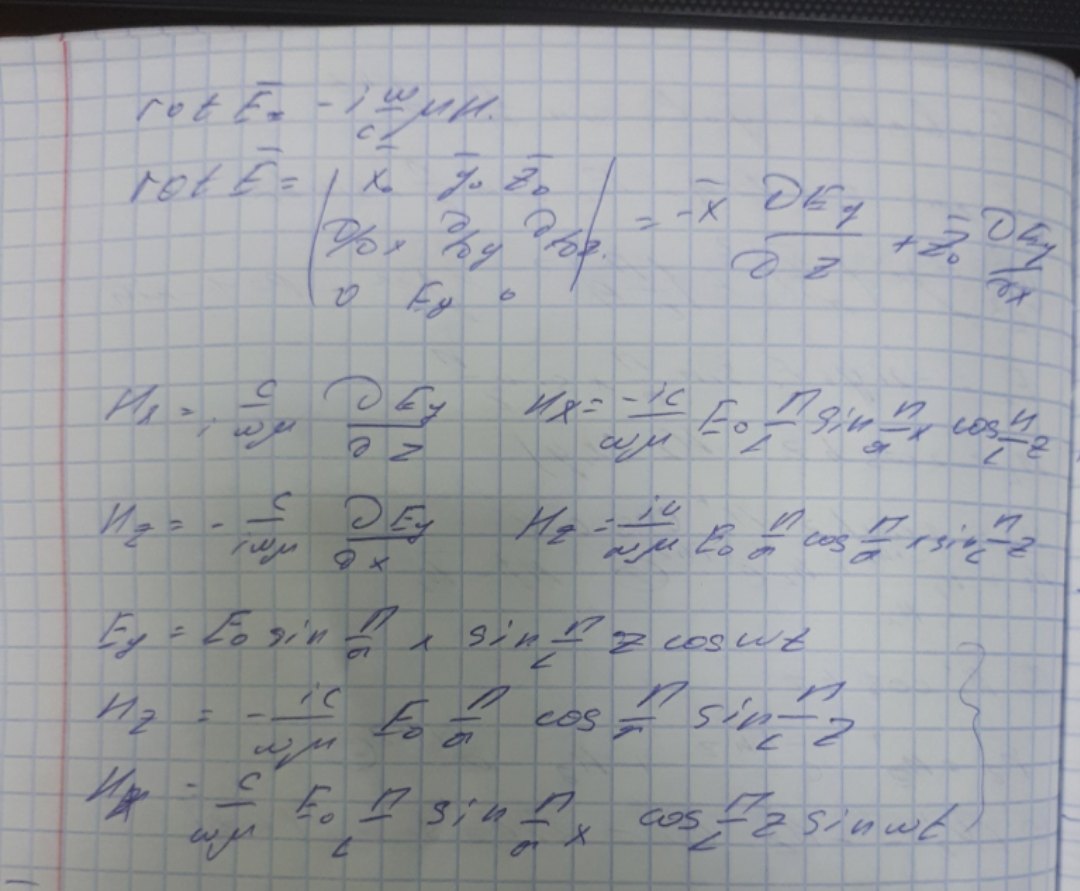 rot Ē = -i ω/c μH.
rot Ē = | x̄₀ ȳ₀ z̄₀ |
| ∂/∂x ∂/∂y ∂/∂z. | = -x̄ ∂Ey/∂z + z̄₀ ∂Ey/∂x
| 0 Ey 0 |
Hx = c/iωμ ∂Ey/∂z Hx = -ic/ωμ E₀ π/L sin π/a x cos π/L z
Hz = - c/iωμ ∂Ey/∂x Hz = ic/ωμ E₀ π/a cos π/a x sin π/L z
Ey = E₀ sin π/a x sin π/L z cos ωt
Hz = - ic/ωμ E₀ π/a cos π/a sin π/L z
Hx = c/ωμ E₀ π/L sin π/a x cos π/L z sin ωt